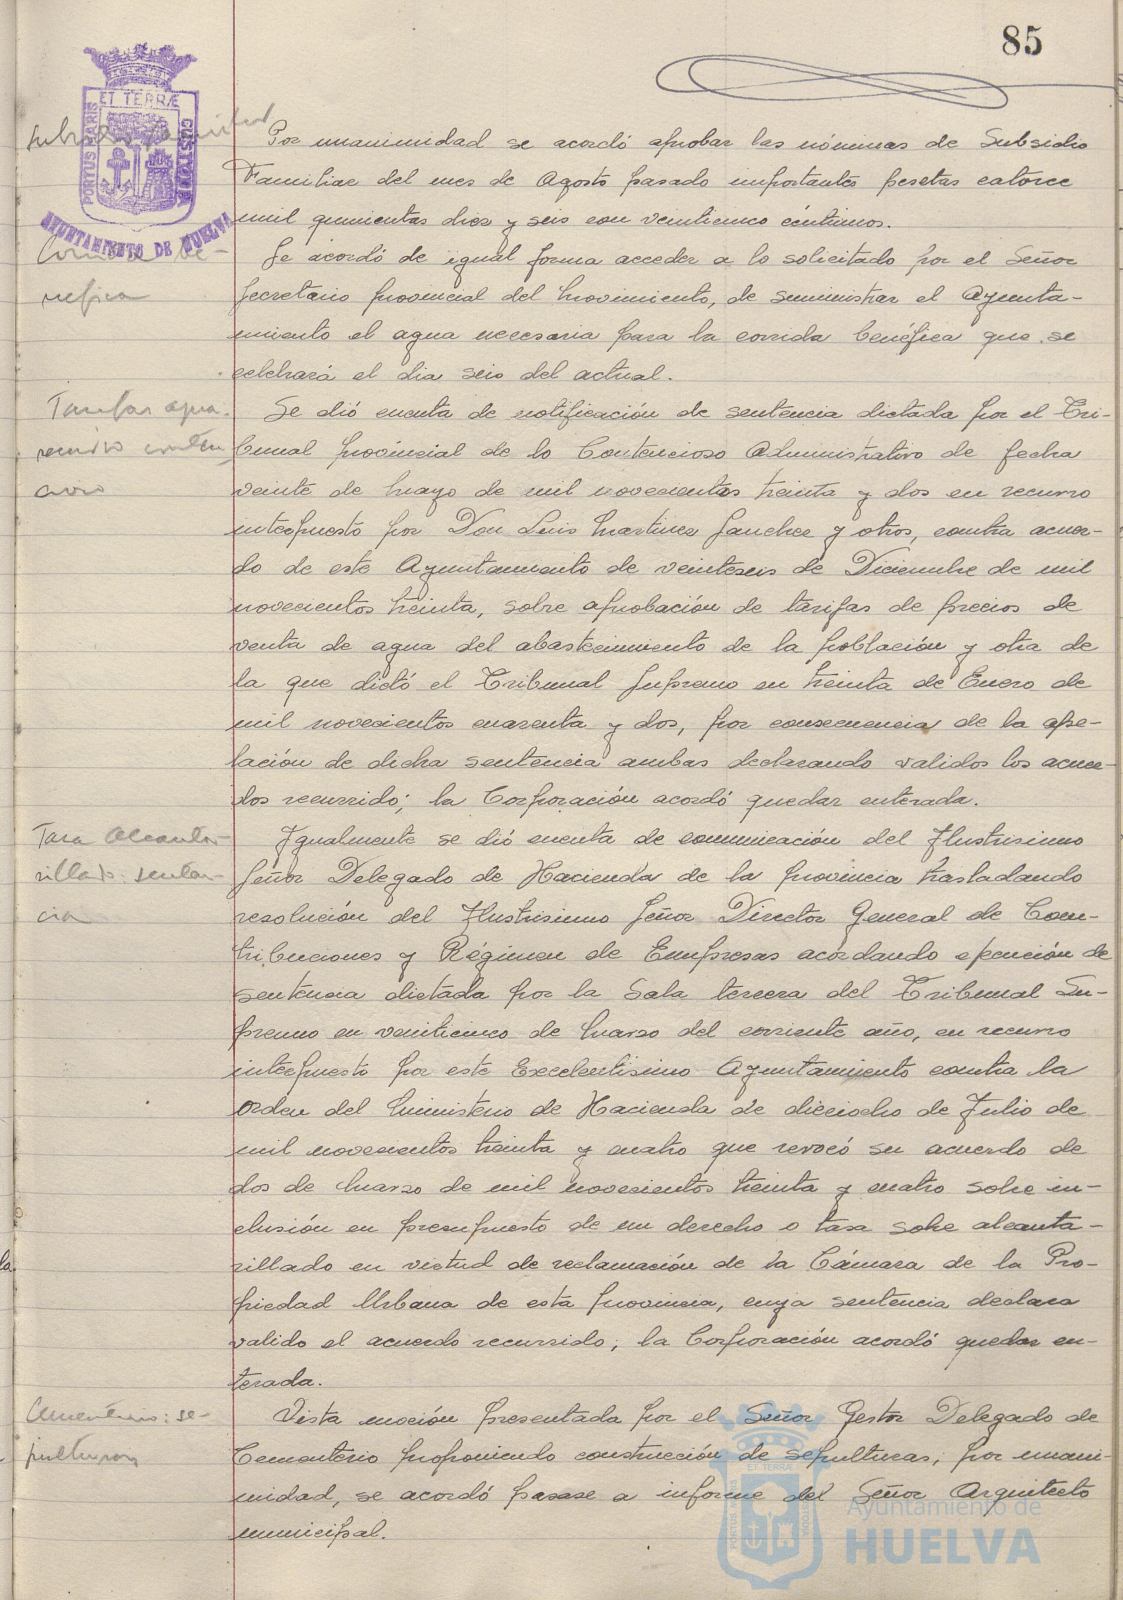 85
ET TERRÆ
PORTUS MARIS
CUSTODIA
AYUNTAMIENTO DE HUELVA
Subsidio familiar
Por unanimidad se acordó aprobar las nóminas de Subsidio
Familiar del mes de Agosto pasado importantes pesetas catorce
mil quinientas diez y seis con veinticinco céntimos.
Corrida be-
néfica
Se acordó de igual forma acceder a lo solicitado por el Señor
Secretario provincial del Movimiento, de suministrar el Ayunta-
miento el agua necesaria para la corrida benéfica que se
celebrará el dia seis del actual.
Tarifas agua.
recurso conten
cioso
Se dió cuenta de notificación de sentencia dictada por el Tri-
bunal provincial de lo Contencioso Administrativo de fecha
veinte de Mayo de mil novecientos treinta y dos en recurso
interpuesto por Don Luis Martinez Sanchez y otros, contra acuer-
do de este Ayuntamiento de veinteseis de Diciembre de mil
novecientos treinta, sobre aprobación de tarifas de precios de
venta de agua del abastecimiento de la población y otra de
la que dictó el Tribunal Supremo en treinta de Enero de
mil novecientos cuarenta y dos, por consecuencia de la ape-
lación de dicha sentencia ambas declarando validos los acuer-
dos recurrido; la Corporación acordó quedar enterada.
Tasa Alcanta-
rillado: senten-
cia
Igualmente se dió cuenta de comunicación del Ilustrisimo
Señor Delegado de Hacienda de la provincia trasladando
resolución del Ilustrisimo Señor Director General de Con-
tribuciones y Régimen de Empresas acordando ejecución de
sentencia dictada por la Sala tercera del Tribunal Su-
premo en veinticinco de Marzo del corriente año, en recurso
interpuesto por este Excelentisimo Ayuntamiento contra la
Orden del Ministerio de Hacienda de dieciocho de Julio de
mil novecientos treinta y cuatro que revocó su acuerdo de
dos de Marzo de mil novecientos treinta y cuatro sobre in-
clusión en presupuesto de un derecho o tasa sobre alcanta-
rillado en virtud de reclamación de la Cámara de la Pro-
piedad Urbana de esta provincia, cuya sentencia declara
valido el acuerdo recurrido; la Corporación acordó quedar en-
terada.
Cementerio: se-
pulturas
Vista moción presentada por el Señor Gestor Delegado de
Cementerio proponiendo construcción de sepulturas; por unani-
midad, se acordó pasase a informe del Señor Arquitecto
municipal.
la
Ayuntamiento de
HUELVA